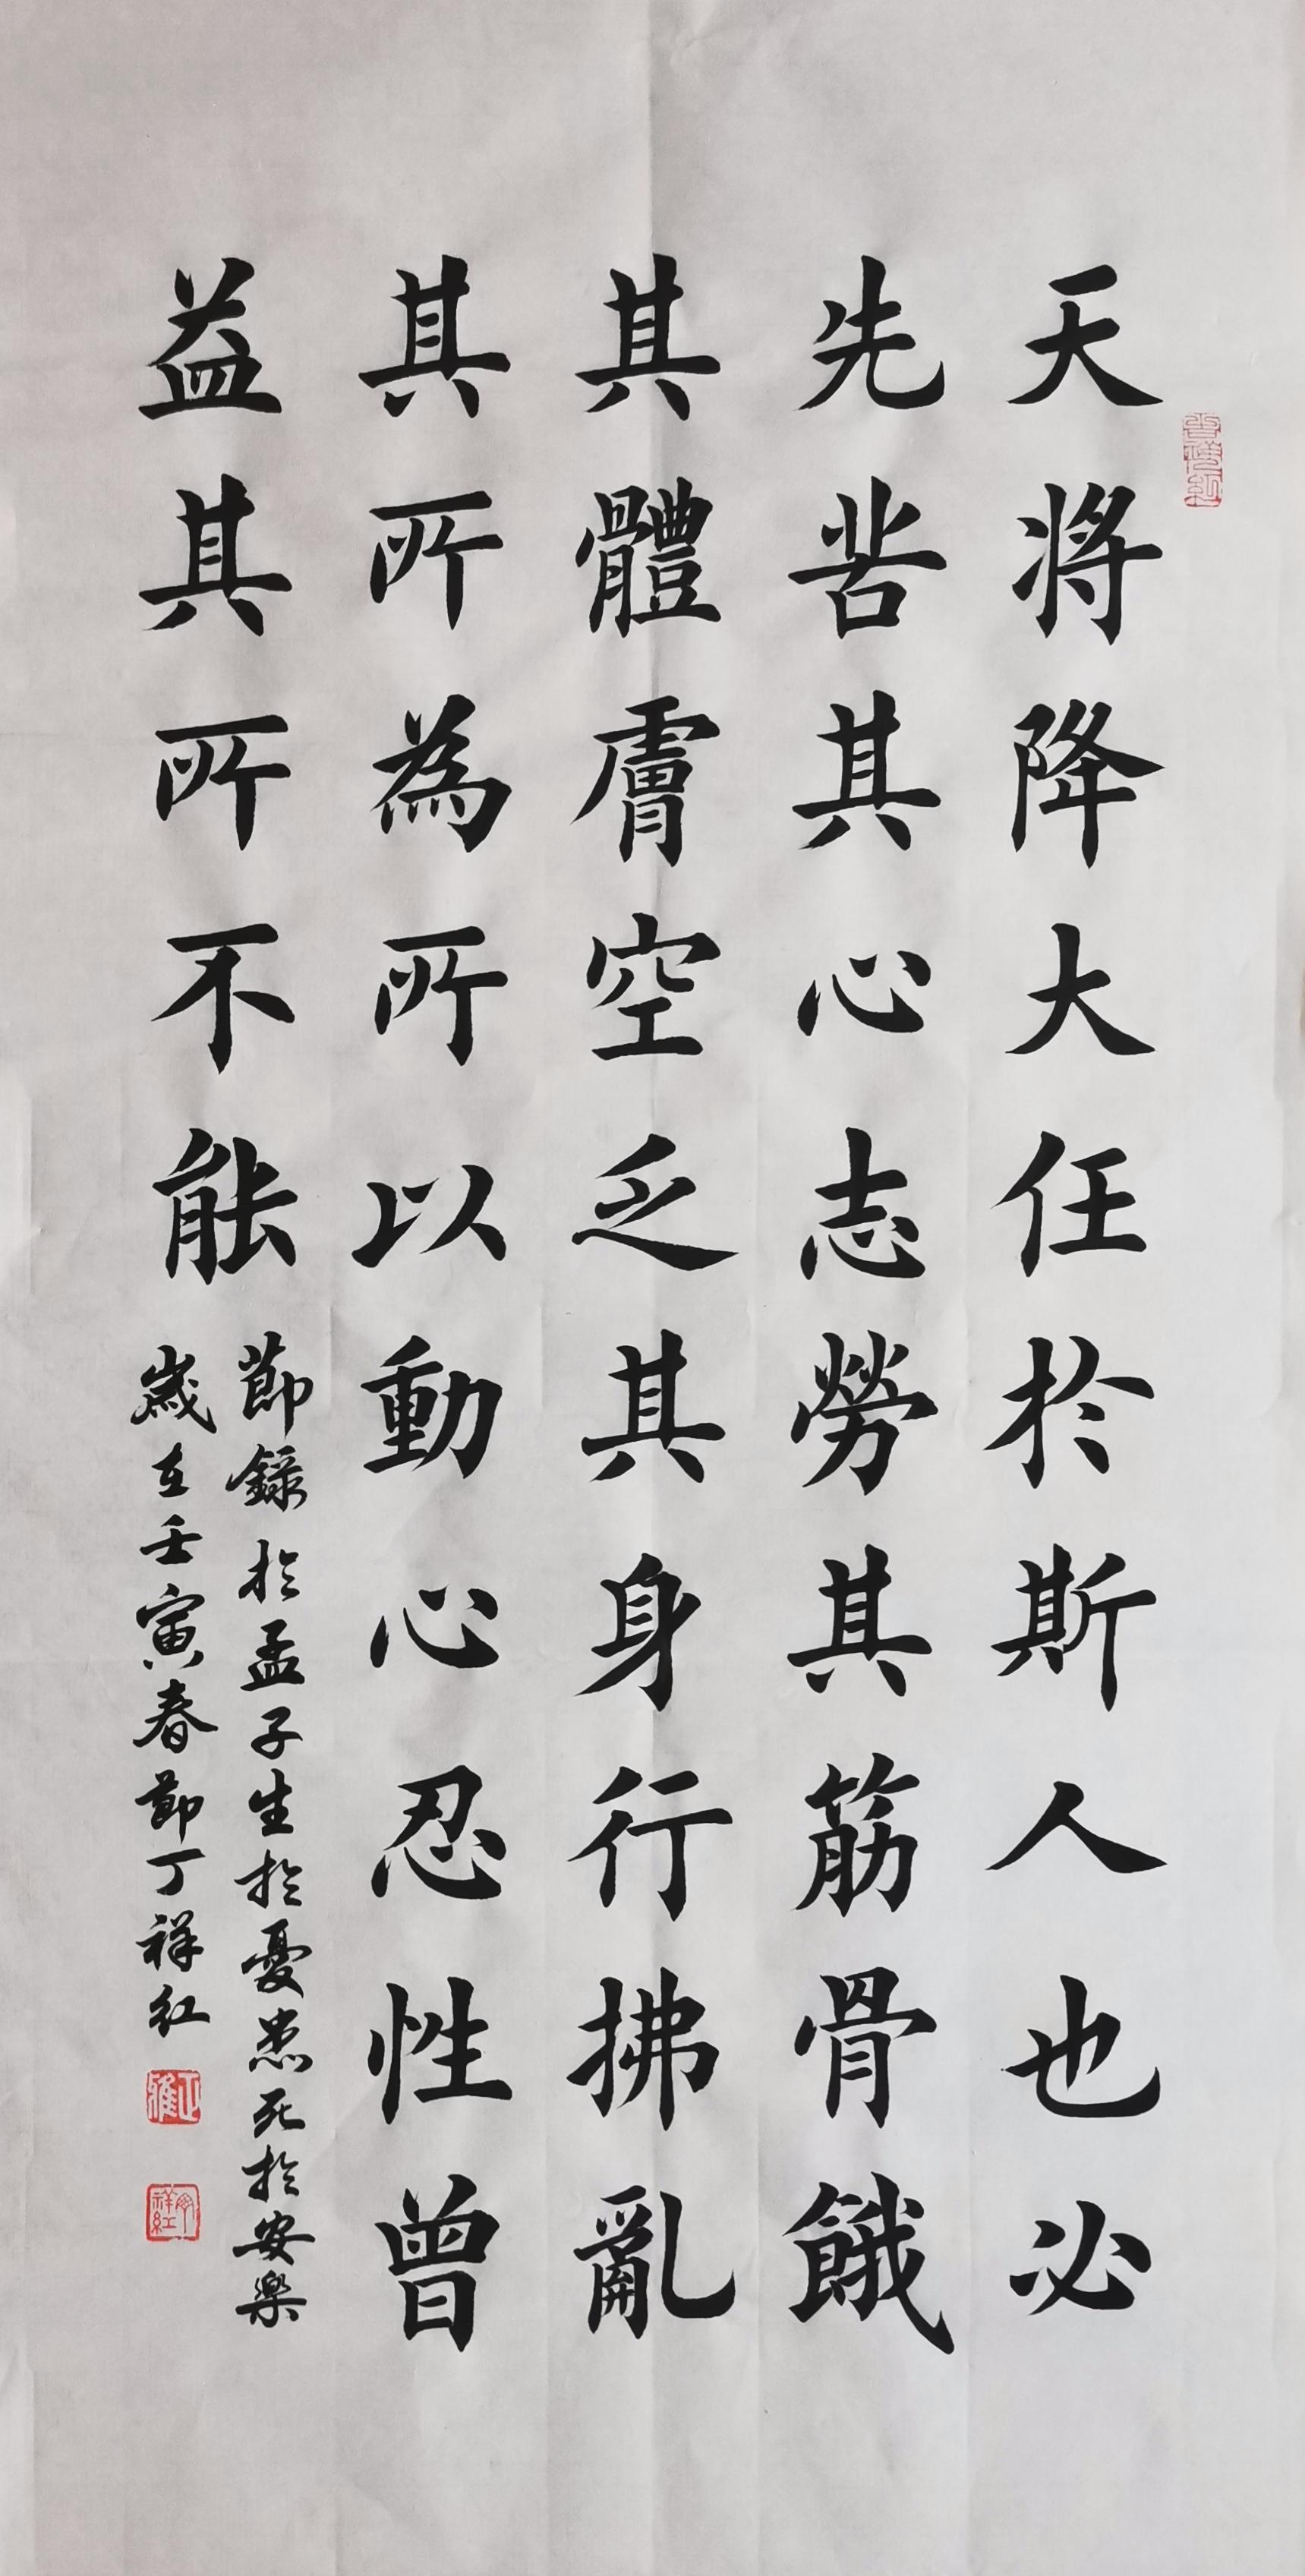 天将降大任於斯人也必
先苦其心志勞其筋骨餓
其體膚空乏其身行拂亂
其所為所以動心忍性曾
益其所不能
節錄於孟子生於憂患死於安樂
歲在壬寅春節丁祥红